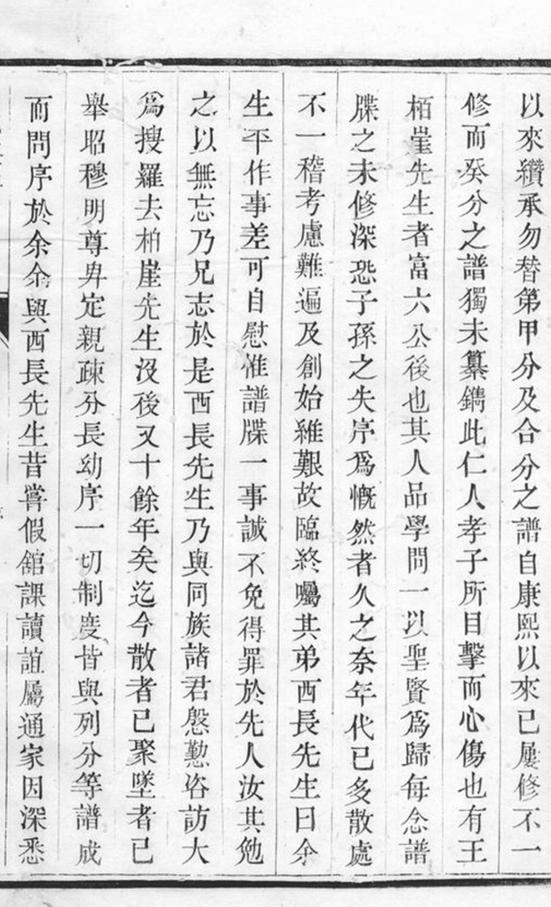 以來纘承勿替第甲分及合分之譜自康熙以來已屢修不一
修而癸分之譜獨未纂鐫此仁人孝子所目擊而心傷也有王
栢崖先生者富六公後也其人品學問一以聖賢爲歸每念譜
牒之未修深恐子孫之失序爲慨然者久之奈年代已多散處
不一稽考慮難遍及創始維艱故臨終囑其弟酉長先生曰余
生平作事差可自慰惟譜牒一事誠不免得罪於先人汝其勉
之以無忘乃兄志於是酉長先生乃與同族諸君慇懃咨訪大
爲搜羅去柏崖先生沒後又十餘年矣迄今散者已聚墜者已
舉昭穆明尊卑定親疎分長幼序一切制度皆與列分等譜成
而問序於余余與酉長先生昔嘗假舘課讀誼屬通家因深悉